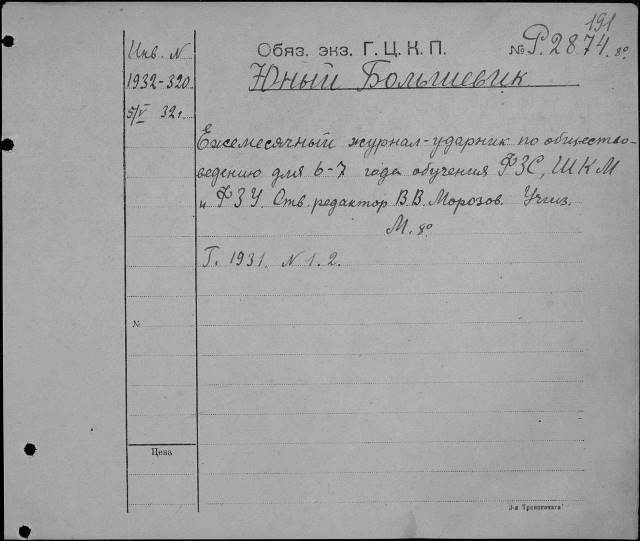 191
Инв. N
Обяз. экз. Г. Ц. К. П.
№ Р. 2874. 8º
1932-320
Юный Большевик
5/V 32 г.
Ежемесячный журнал-ударник по общество-
ведению для 6-7 года обучения ФЗС, ШКМ
и ФЗУ. Отв. редактор В. В. Морозов. Учгиз.
М. 8º
Г. 1931. N 1. 2.
№
Цена